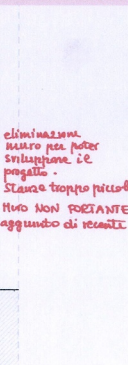 eliminazione
muro per poter
sviluppare il
progetto.
Stanze troppo piccole
MURO NON PORTANTE
aggiunto di recente